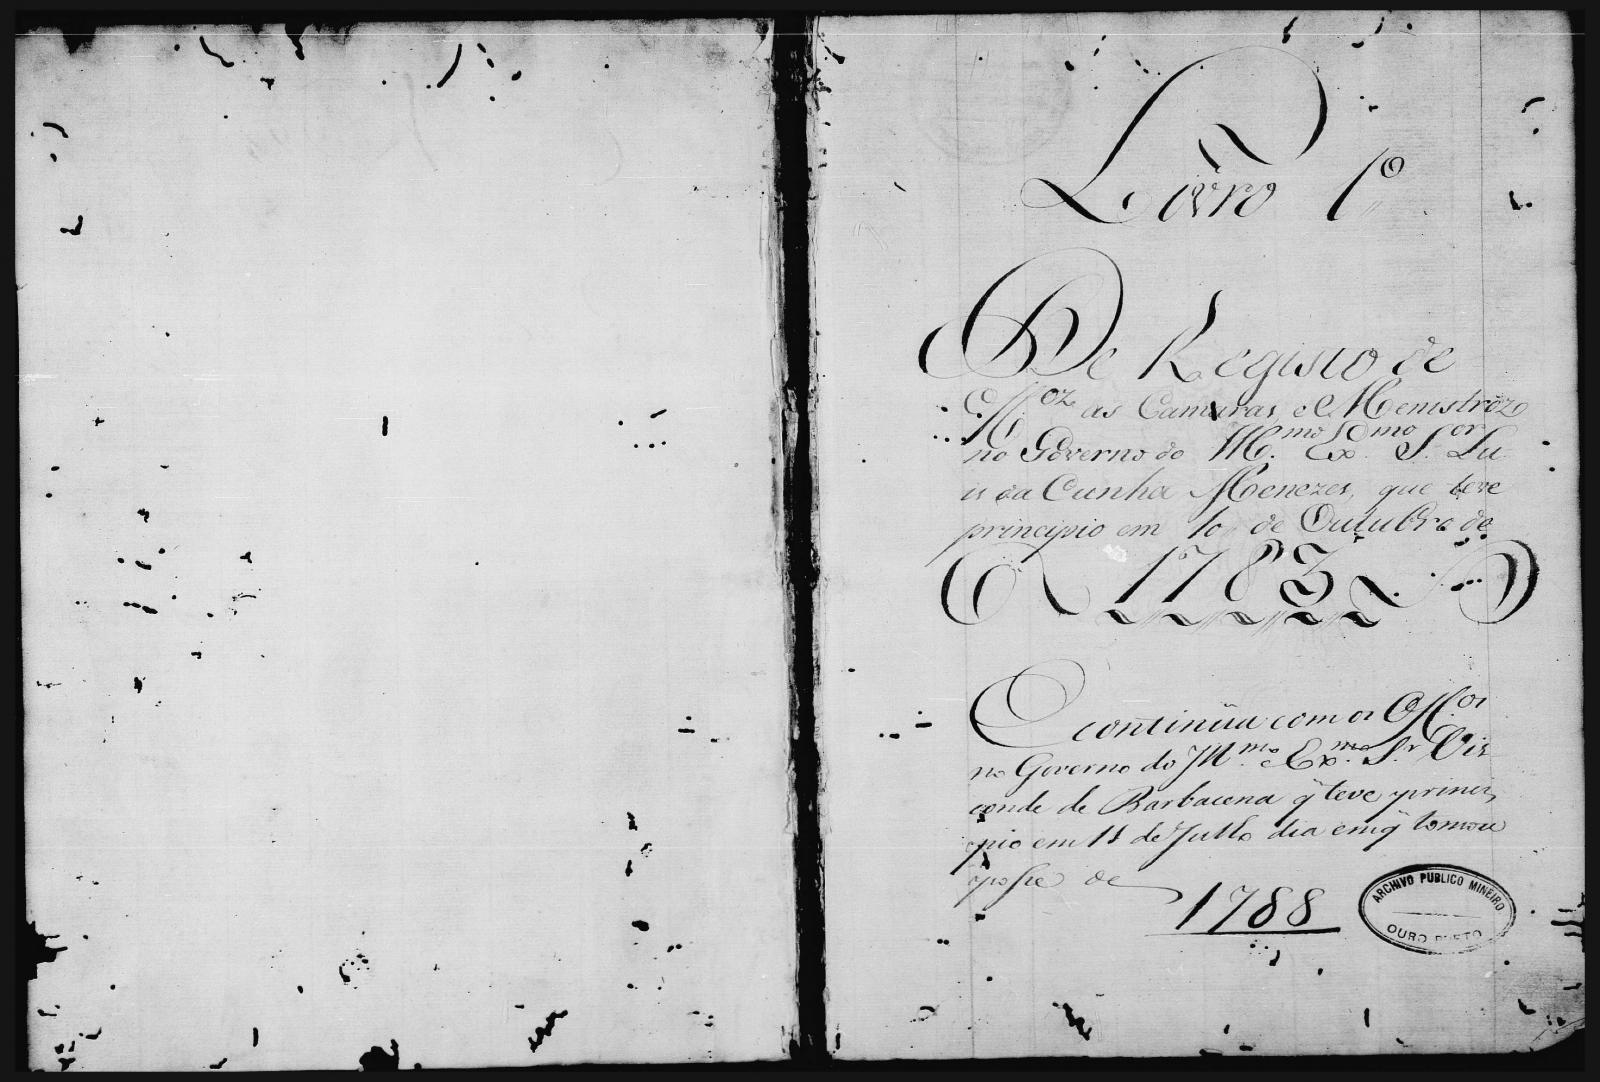 Livro 1º
De Registo de
Off.os as Camaras, e Menistros
no Governo do Ill.mo Ex.mo S.or Lu
is da Cunha Menezes, que teve
principio em 10 de Outubro de
1783
Continúa com os Off.os
no Governo do Ill.mo e Ex.mo S.r Vis
conde de Barbacena q̃ teve princi
pio em 11 de Julho dia em q̃ tomou
posse de
1788
ARCHIVO PUBLICO MINEIRO
OURO PRETO